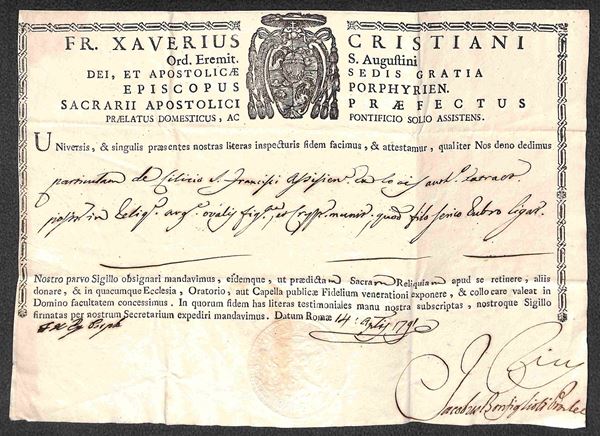 FR. XAVERIUS CRISTIANI
Ord. Eremit. S. Augustini
DEI, ET APOSTOLICÆ SEDIS GRATIA
EPISCOPUS PORPHYRIEN.
SACRARII APOSTOLICI PRÆFECTUS
PRÆLATUS DOMESTICUS, AC PONTIFICIO SOLIO ASSISTENS.
Universis, & singulis præsentes nostras literas inspecturis fidem facimus, & attestamur, qualiter Nos deno dedimus
particulam de Cilicio S. Francisci Assisien. ex locis auth. extract.
posit. in ovalis filo serico rubro ligat.
Nostro parvo Sigillo obsignari mandavimus, eidemque, ut prædictam Sacram Reliquiam apud se retinere, aliis
donare, & in quacumque Ecclesia, Oratorio, aut Capella publicæ Fidelium venerationi exponere, & collocare valeat in
Domino facultatem concessimus. In quorum fidem has literas testimoniales manu nostra subscriptas, nostroque Sigillo
firmatas per nostrum Secretarium expediri mandavimus. Datum Romæ 14
Jacobus Bonfiglioli